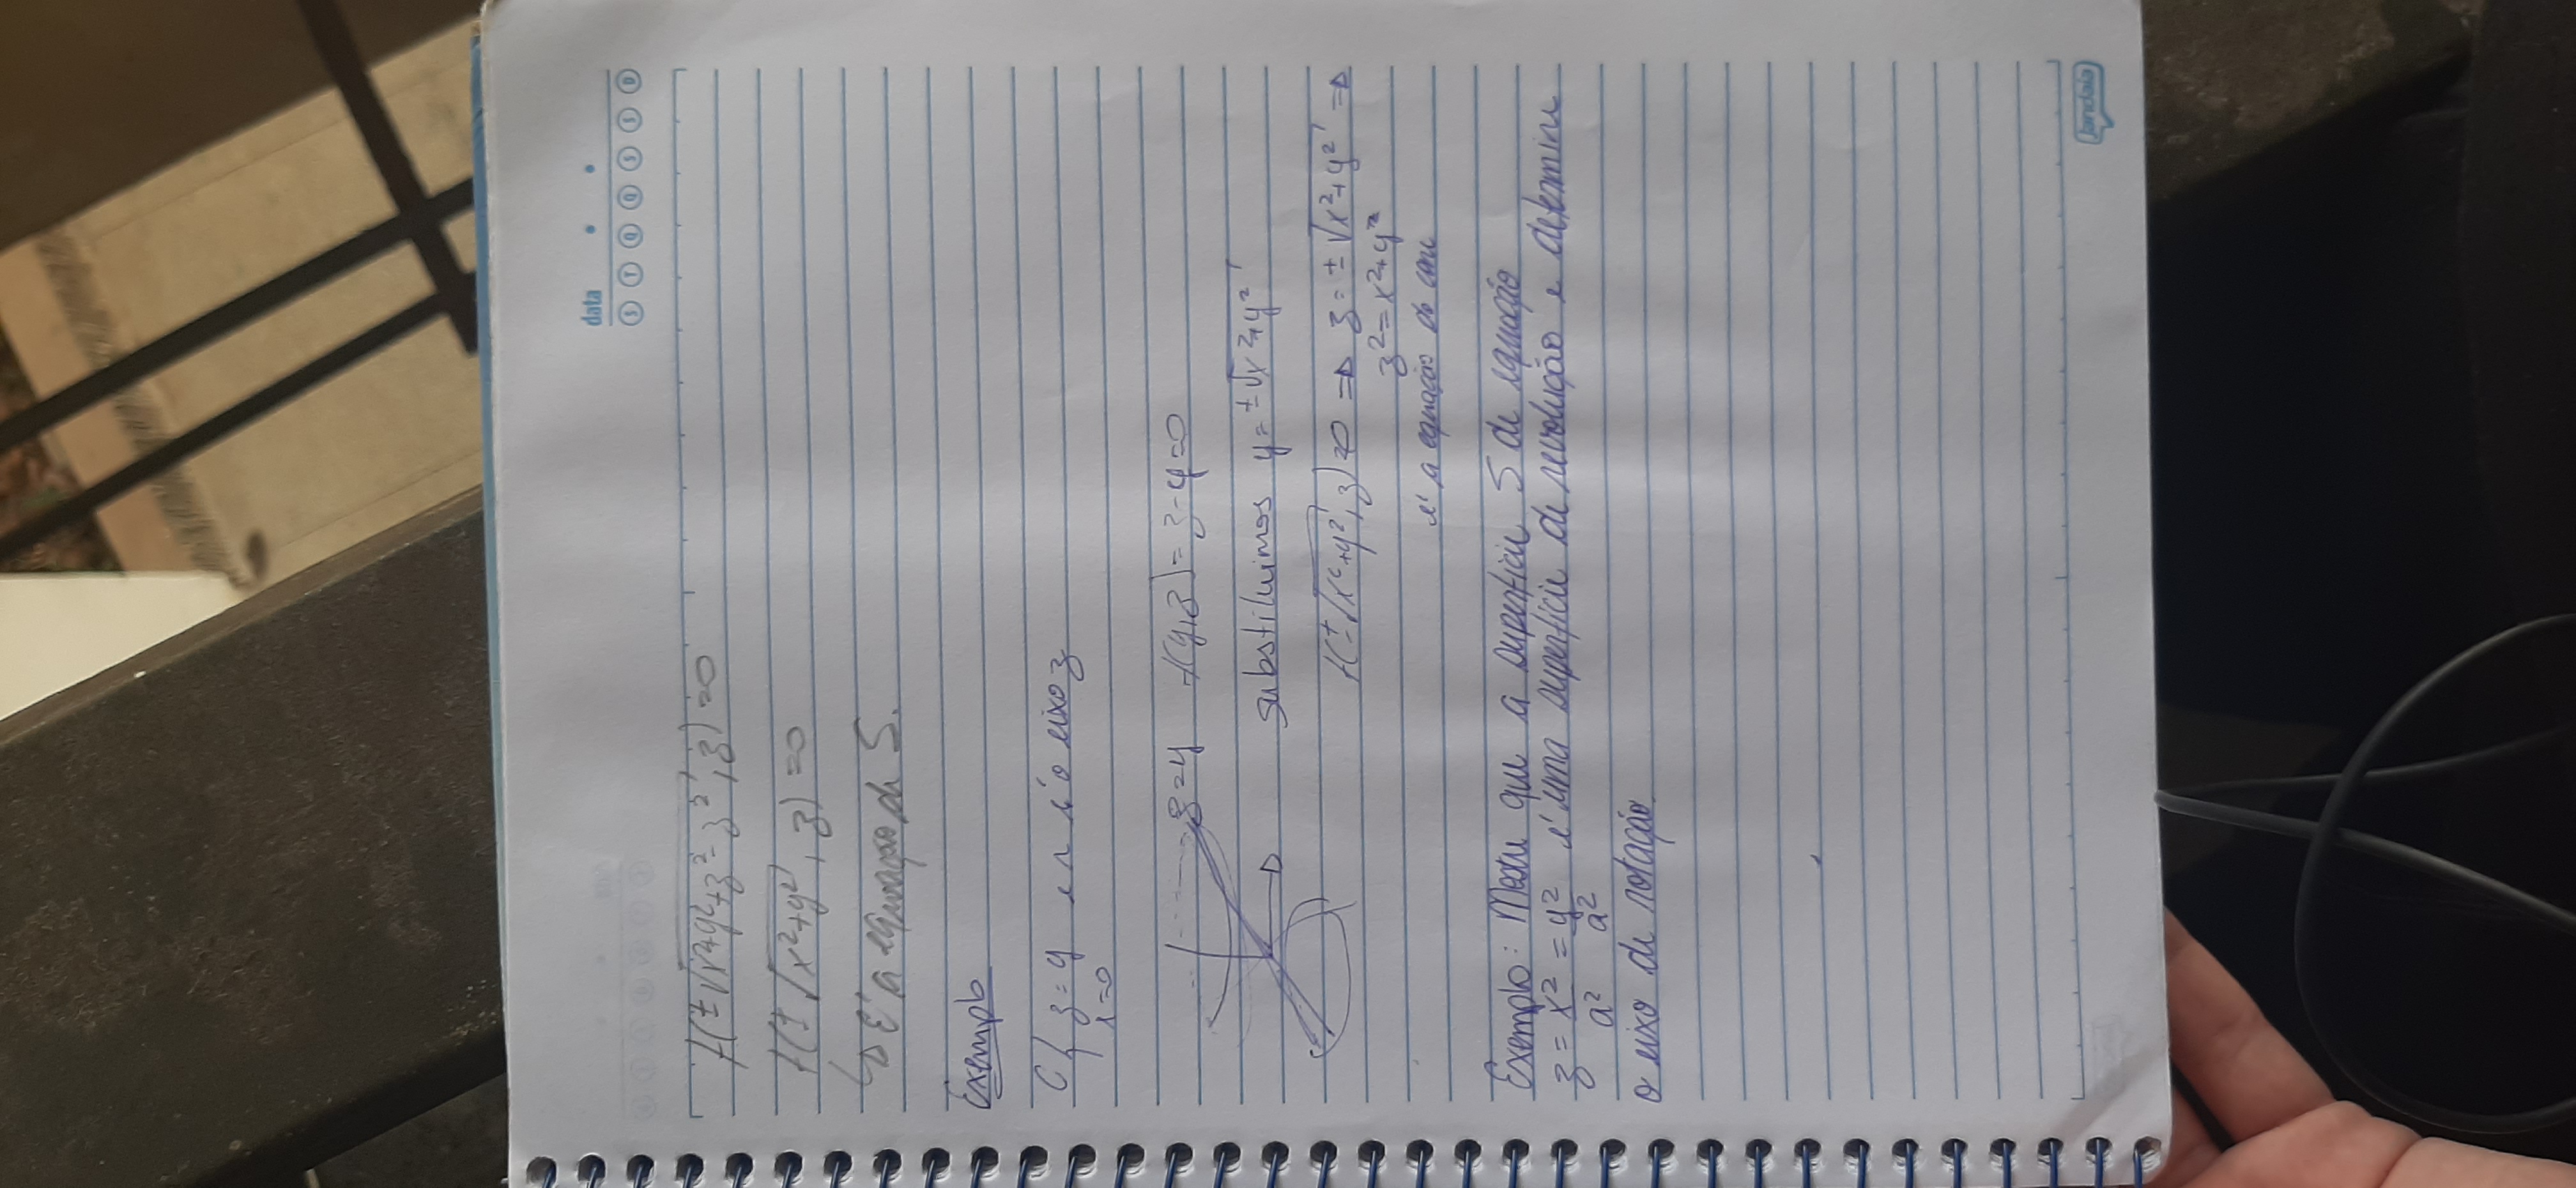 data
S T Q Q S S D
f(±√x²+y²+z²-z², z)=0
f(±√x²+y², z)=0
↳ É a equação de S.
Exemplo
C{ z=y e r é o eixo z
x=0
z=y f(y,z)=z-y=0
substituimos y=±√x²+y²
f(±√x²+y², z)=0 ⇒ z=±√x²+y² ⇒
z²=x²+y²
é a equação do cone
Exemplo: Mostre que a superfície S de equação
z = x²/a² = y²/a² é uma superfície de revolução e determine
o eixo de rotação.
Jandaia